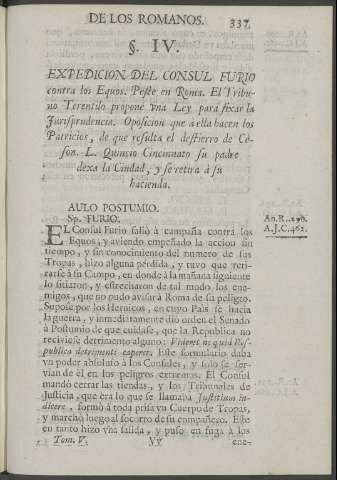 DE LOS ROMANOS. 337.
§. IV.
EXPEDICION DEL CONSUL FURIO
contra los Equos. Peste en Roma. El Tribu-
no Terentilo propone vna Ley para fixar la
Jurisprudencia. Oposicion que à ella hacen los
Patricios, de que resulta el destierro de Cè-
son. L. Quincio Cincinnato su padre
dexa la Ciudad, y se retira à su
hacienda.
AULO POSTUMIO.
Sp. FURIO.
An. R. 290.
A. J. C. 462.
EL Consul Furio saliò à campaña contra los
Equos, y aviendo empeñado la accion sin
tiempo, y sin conocimiento del numero de sus
Tropas, hizo alguna pérdida, y tuvo que reti-
rarse à su Campo, en donde à la mañana siguiente
lo sitiaron, y estrecharon de tal modo los ene-
migos, que no pudo avisar à Roma de su peligro.
Supose por los Hernicos, en cuyo País se hacia
la guerra, y inmediatamente diò orden el Senado
à Postumio de que cuidase, que la Republica no
reciviese detrimento alguno: Videret ne quid Res-
publica detrimenti caperet. Este formulario daba
vn poder absoluto à los Consules, y solo se ser-
vian de èl en los peligros extremos. El Consul
mandò cerrar las tiendas, y los Tribunales de
Justicia, que era lo que se llamaba Justitium in-
dicere, formò à toda prisa vn Cuerpo de Tropas,
y marchò luego al socorro de su compañero. Este
en tanto hizo vna salida, y puso en fuga à los
Tom. V. Vv ene-